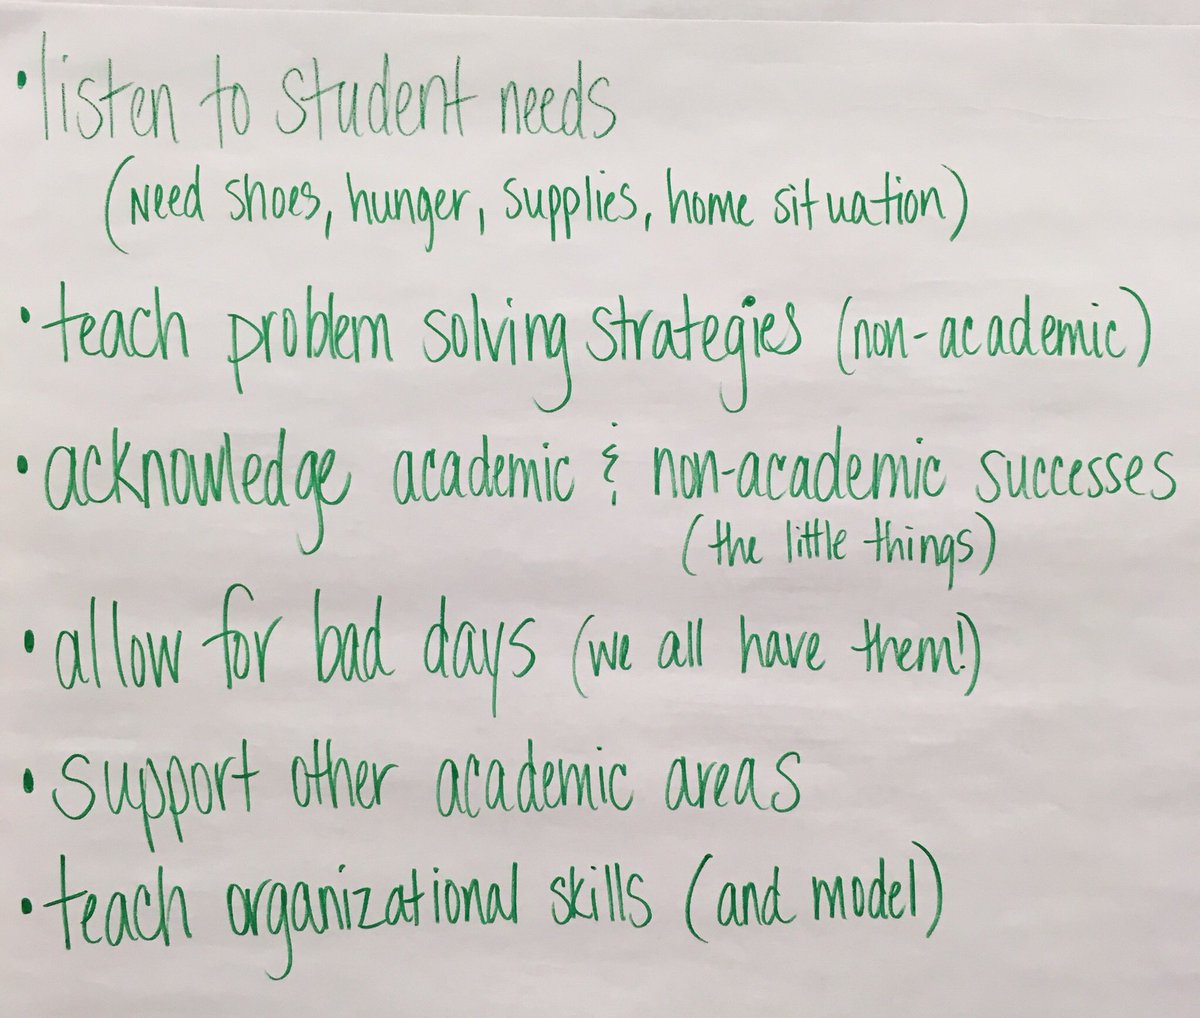 • listen to student needs
(Need shoes, hunger, supplies, home situation)
• teach problem solving strategies (non-academic)
• acknowledge academic & non-academic successes
(the little things)
• allow for bad days (we all have them!)
• support other academic areas
• teach organizational skills (and model)